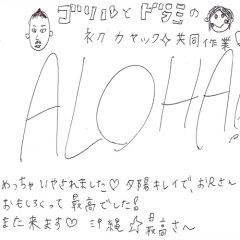 ゴリルとドラミの
初カヤック☆共同作業♡
ALOHA
めっちゃいやされました♡夕陽キレイで、お兄さん
おもしろくって最高でした!
また来ます♡沖縄☆最高さ〜